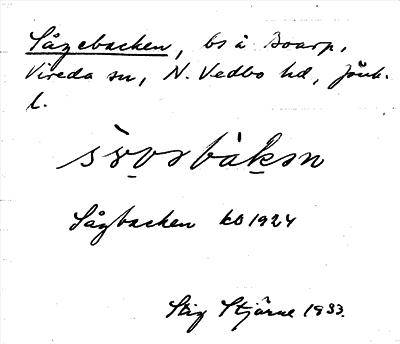 Sågebacken, bs å Boarp,
Vireda sn, N. Vedbo hd, Jönk.
l.
Sågbacken kb 1924
Stig Stjärne 1933.